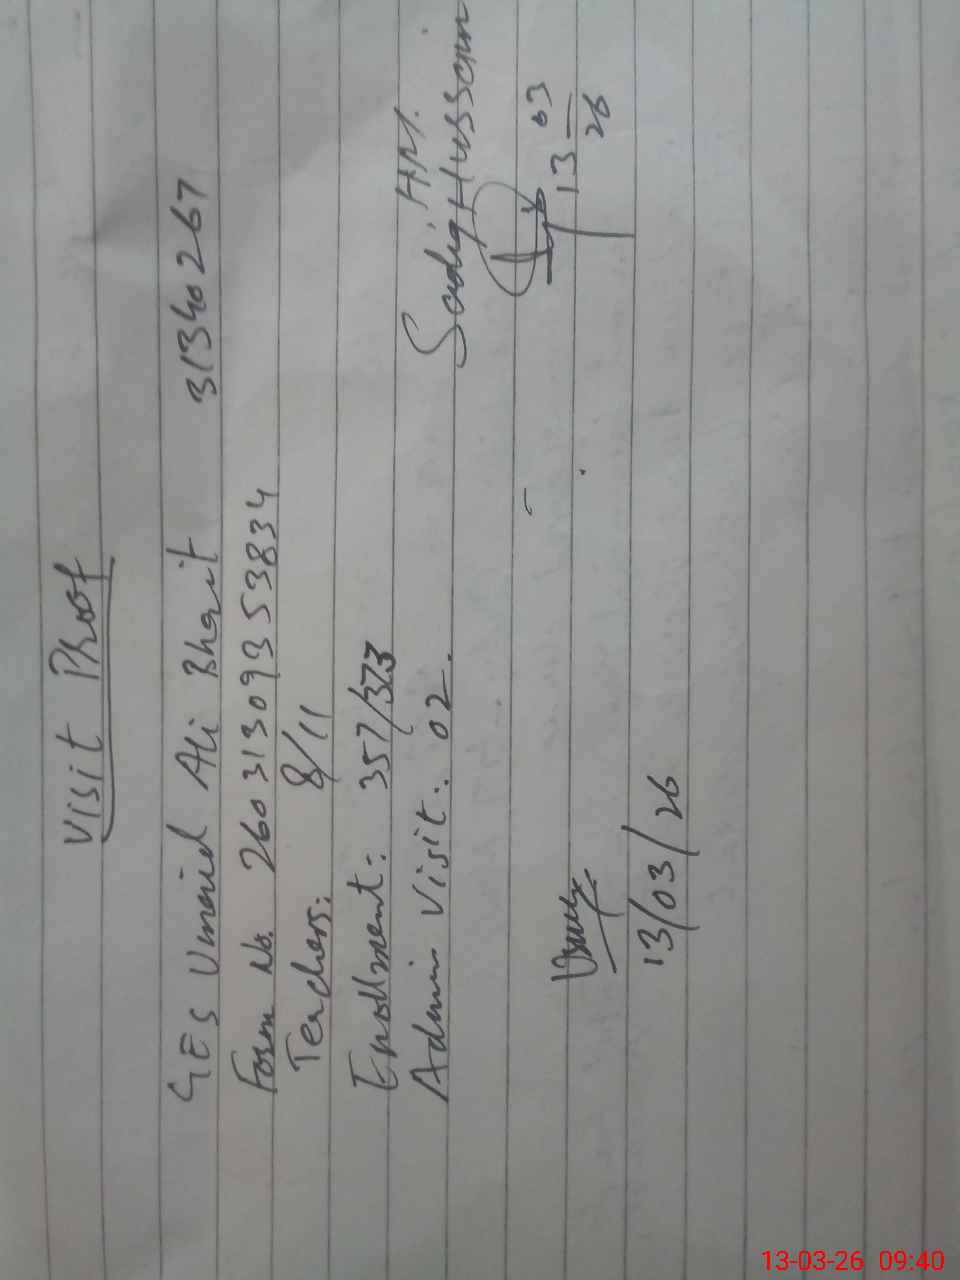 Visit Proof
GES Umaid Ali Bhait 31340267
Form No. 26031309353834
Teachers: 8/11
Enrollment: 357/373
Admin Visit: 02.
HM.
Sadiq Hussain
13 03 26
13/03/26
13-03-26 09:40